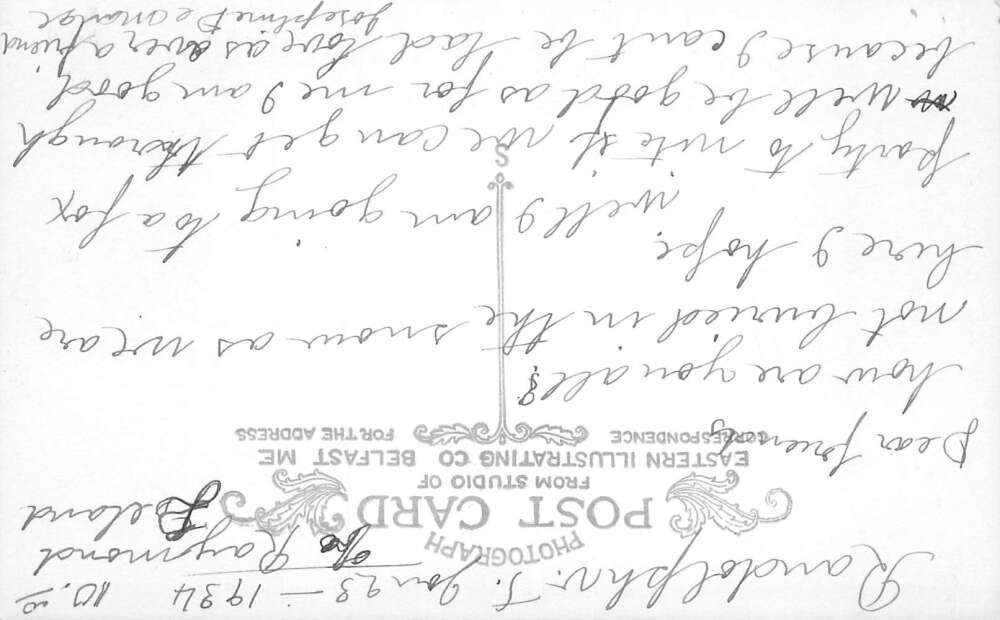 Randolph Jan 23 — 1934
Raymond Beland
PHOTOGRAPH
POST CARD
FROM STUDIO OF
EASTERN ILLUSTRATING CO BELFAST ME
CORRESPONDENCE FOR THE ADDRESS
Dear friends
how are you all?
not buried in the snow as we are
here I hope.
well I am going to a fox
party to nite if we can get thorough
well be good as for me I am good,
because I cant be bad love as ever a friend
Josephine
S